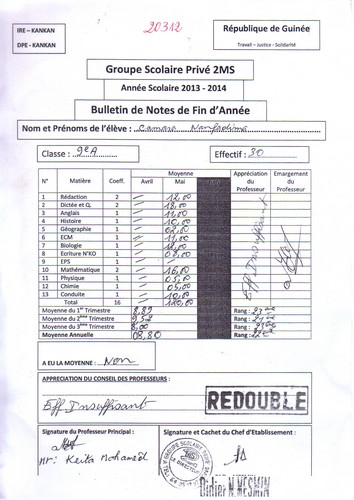 IRE – KANKAN
DPE - KANKAN
20312
République de Guinée
Travail – Justice - Solidarité
Groupe Scolaire Privé 2MS
Année Scolaire 2013 - 2014
Bulletin de Notes de Fin d'Année
Nom et Prénoms de l'élève : Camara
Classe : 9eA
Effectif : 30
N° Matière Coeff. Moyenne Appréciation du Professeur Emargement du Professeur
Avril Mai
1 Rédaction 2 12,00
2 Dictée et Q. 2 18,00
3 Anglais 1 11,00
4 Histoire 1 10,00
5 Géographie 1 02,00
6 ECM 1 11,00
7 Biologie 1
8 Ecriture N'KO 1
9 EPS 1
10 Mathématique 2 16,00
11 Physique 1 05,00
12 Chimie 1 05,00
13 Conduite 1 10,00
Total 16
Eff Insuffisant
Moyenne du 1er Trimestre 8,82 Rang :
Moyenne du 2ème Trimestre 9,52 Rang :
Moyenne du 3ème Trimestre 8,00 Rang :
Moyenne Annuelle 08,80 Rang :
A EU LA MOYENNE : Non
APPRECIATION DU CONSEIL DES PROFESSEURS :
Eff Insuffisant
REDOUBLE
Signature du Professeur Principal :
Mr: Keita Mohamed
Signature et Cachet du Chef d'Etablissement :
LE DIRECTEUR
Didier N.MESMIN